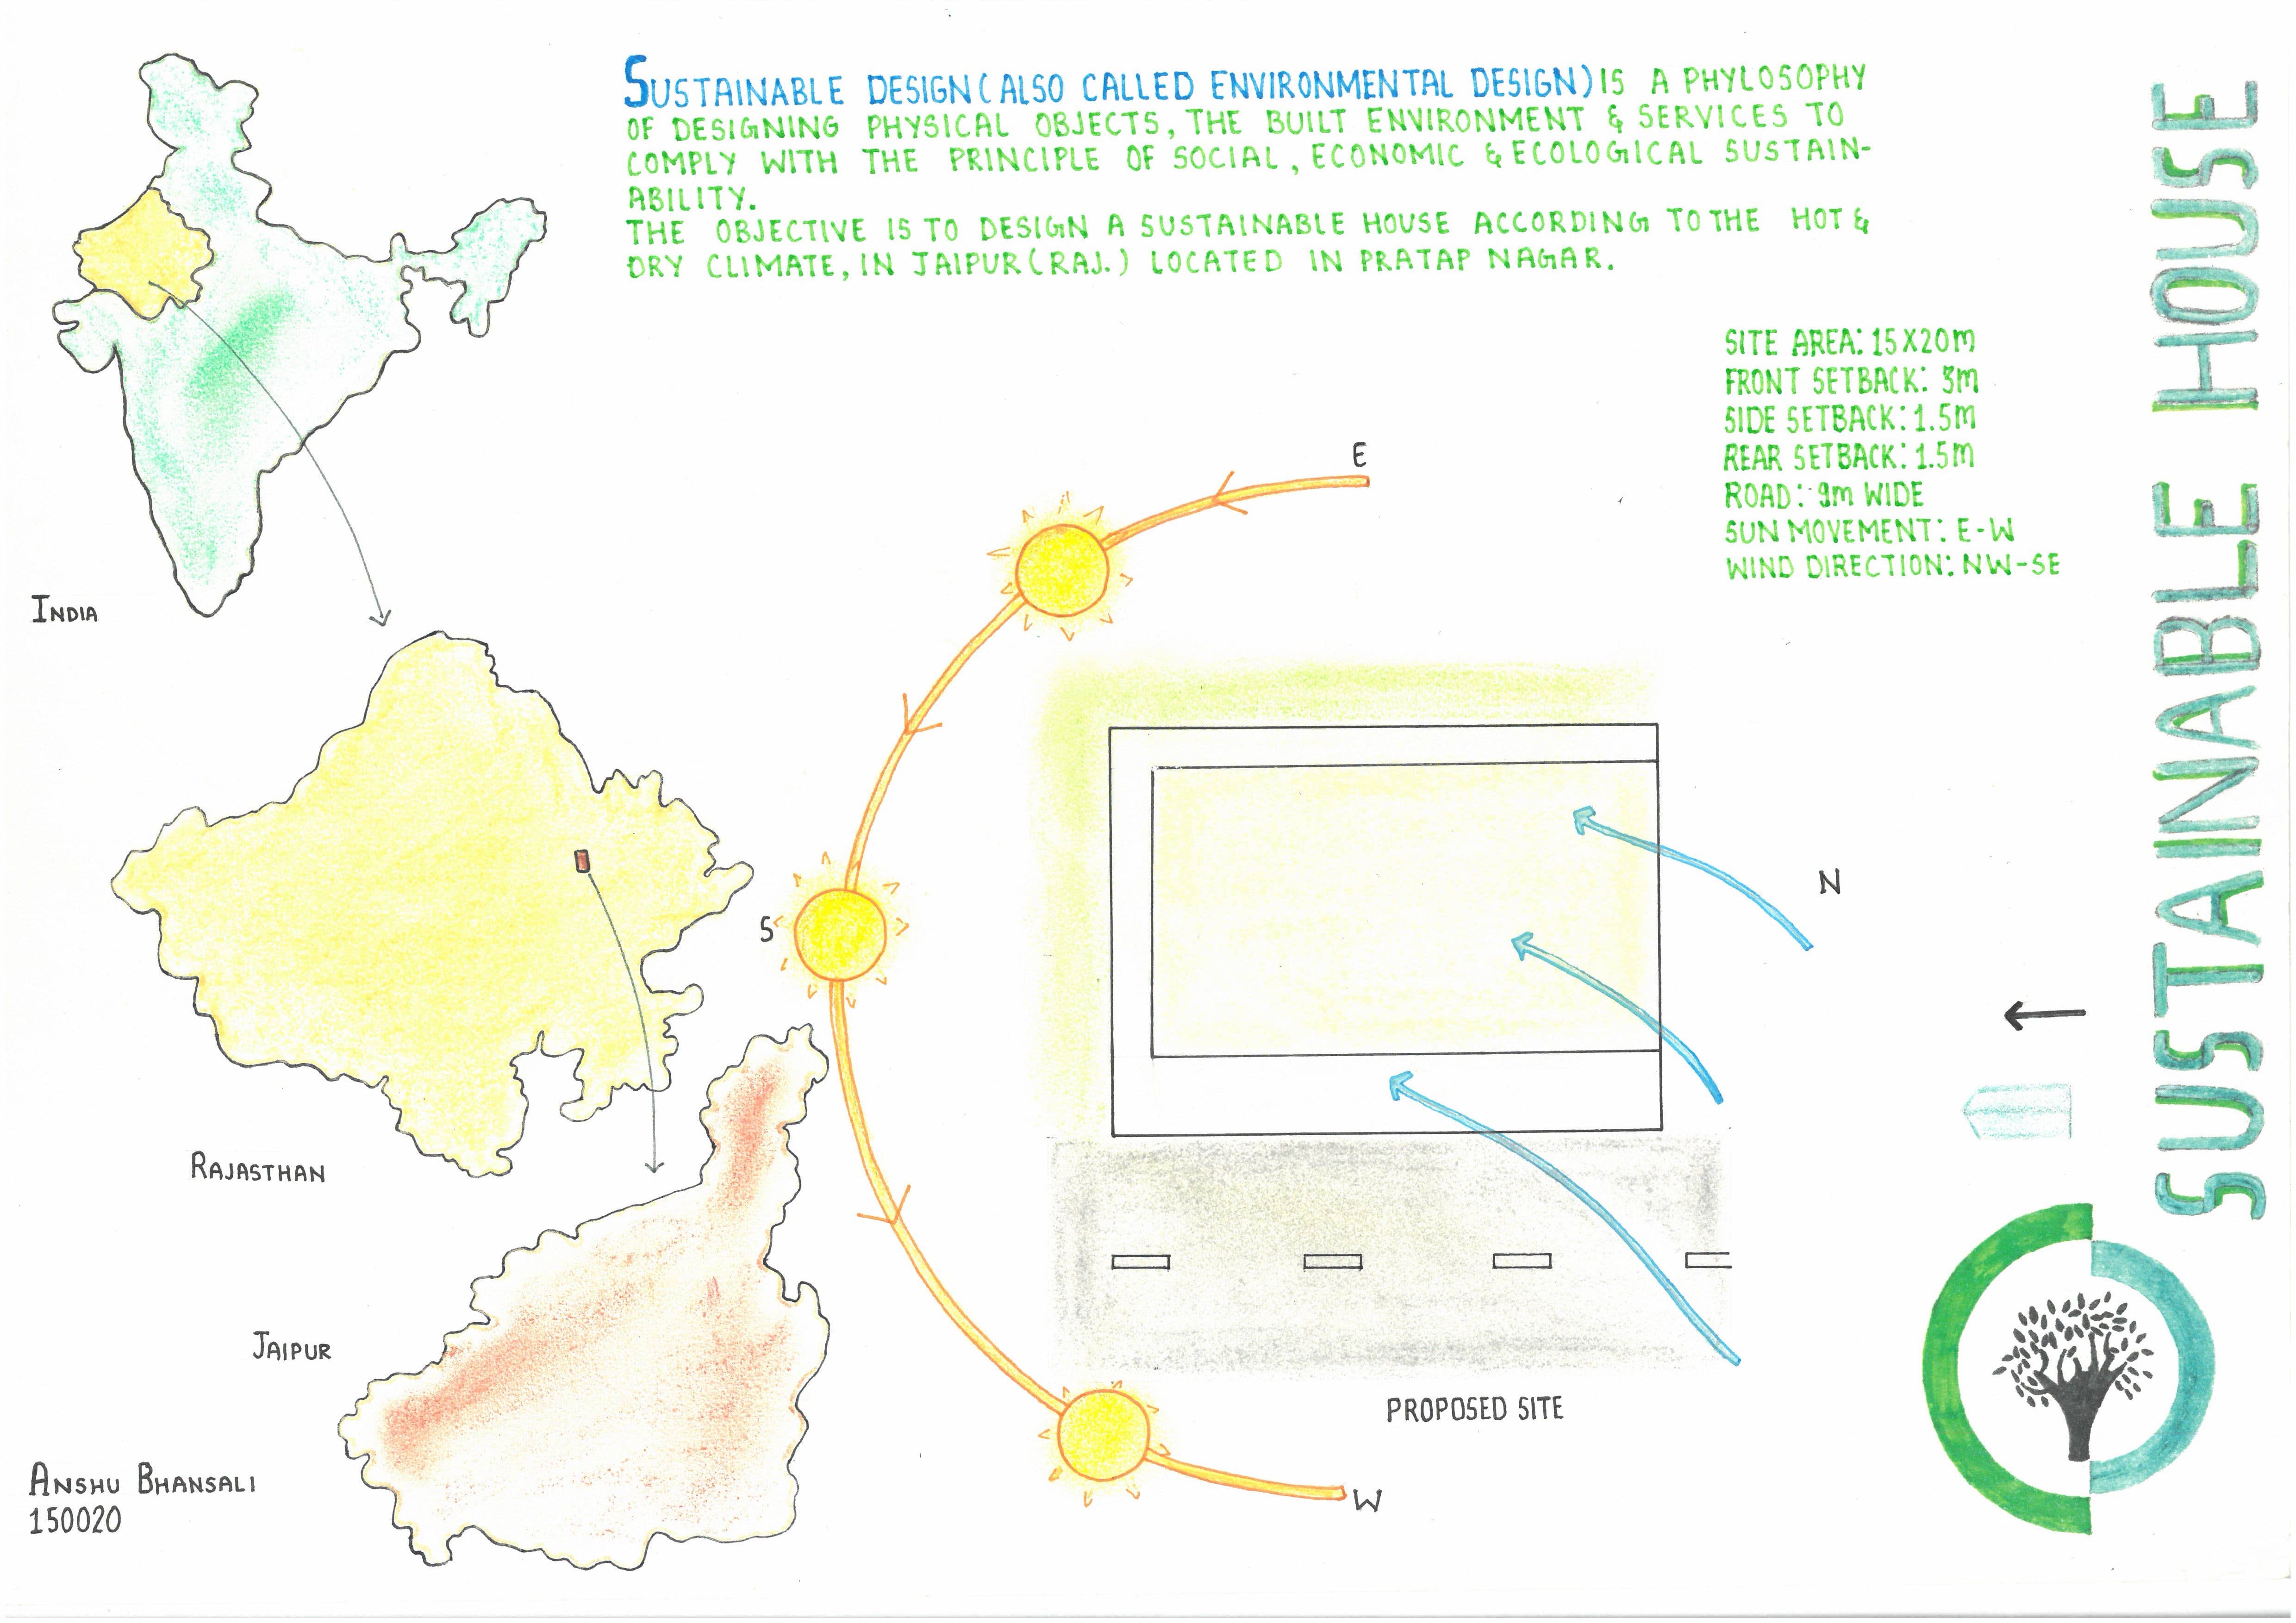 SUSTAINABLE DESIGN (ALSO CALLED ENVIRONMENTAL DESIGN) IS A PHYLOSOPHY
OF DESIGNING PHYSICAL OBJECTS, THE BUILT ENVIRONMENT & SERVICES TO
COMPLY WITH THE PRINCIPLE OF SOCIAL, ECONOMIC & ECOLOGICAL SUSTAIN-
ABILITY.
THE OBJECTIVE IS TO DESIGN A SUSTAINABLE HOUSE ACCORDING TO THE HOT &
DRY CLIMATE, IN JAIPUR (RAJ.) LOCATED IN PRATAP NAGAR.
SITE AREA: 15X20m
FRONT SETBACK: 3m
SIDE SETBACK: 1.5m
REAR SETBACK: 1.5m
ROAD: 9m WIDE
SUN MOVEMENT: E-W
WIND DIRECTION: NW-SE
SUSTAINABLE HOUSE
INDIA
RAJASTHAN
JAIPUR
E
S
N
W
PROPOSED SITE
ANSHU BHANSALI
150020